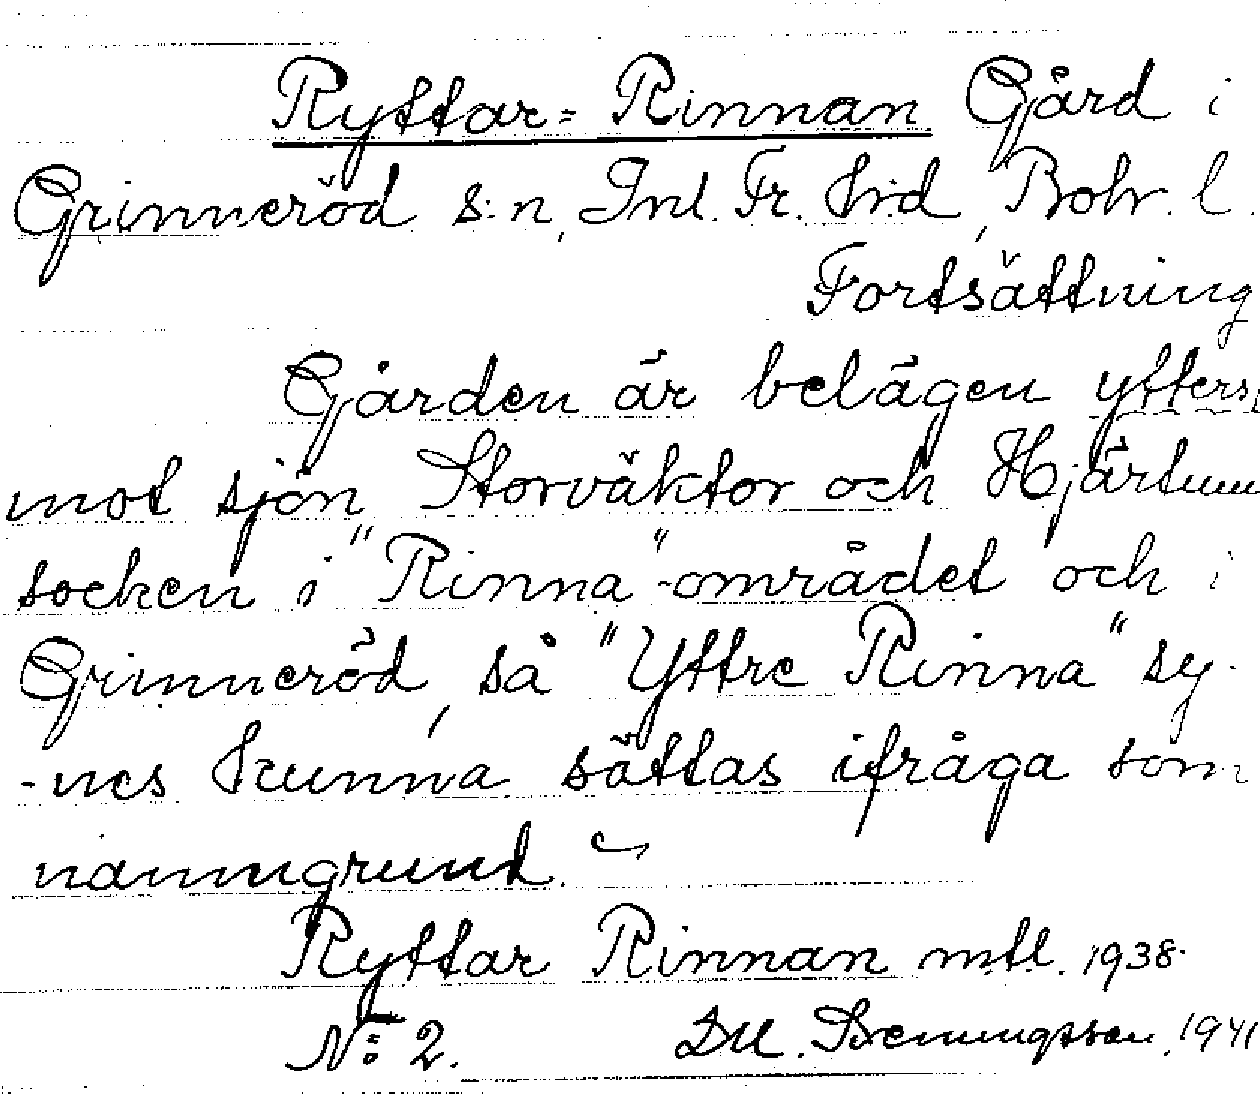 Ryttar=Rinnan Gård i
Grinneröd s:n, Inl. Fr. hrd, Boh. l.
Fortsättning
Gården är belägen ytterst
mot sjön Storväktor och Hjärtum
socken i "Rinna"-området och i
Grinneröd, så "Yttre Rinna" sy-
-nes kunna sättas ifråga som
namngrund.
Ryttar Rinnan mtl. 1938.
No: 2. 1941